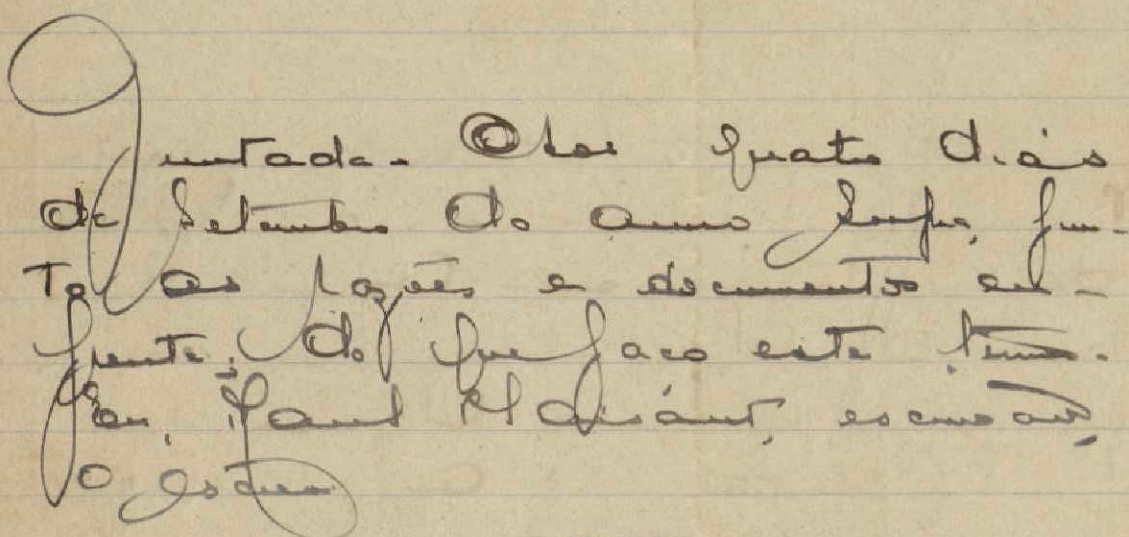 Juntada. Aos quatro dias
de Setembro do anno supra, jun-
to as razões e documentos em
frente; do que faço este termo.
Eu, Raul Plaisant, escrivão,
o escrevi